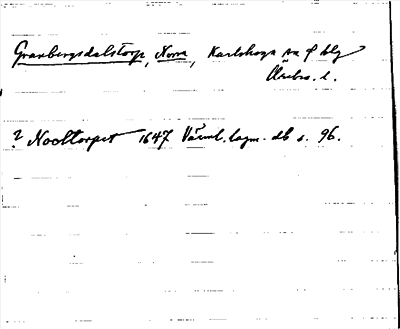 Granbergsdalstorp, Norra, Karlskoga sn o blg
Örebro. l.
? Nocktorpet 1647 Värml. lagm. db s. 96.